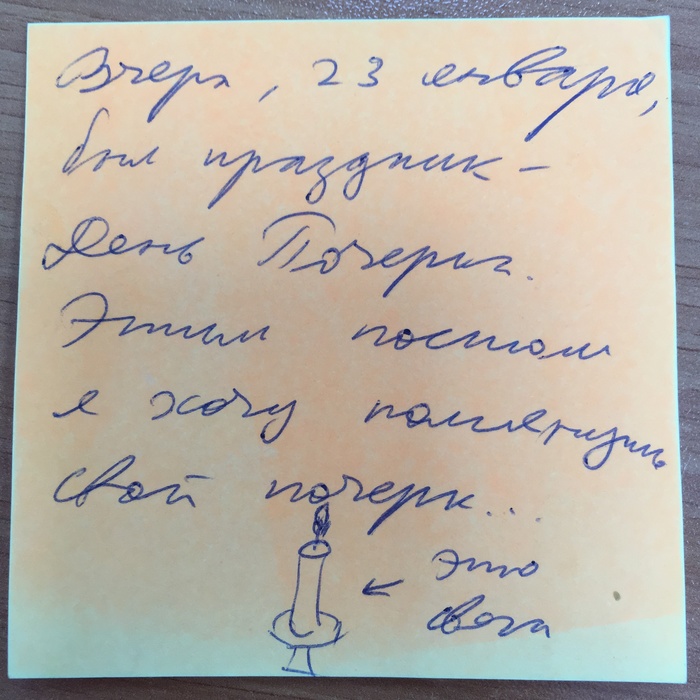 Вчера, 23 января,
был праздник -
День Почерка.
Этим постом
я хочу помянуть
свой почерк...
это
свеча